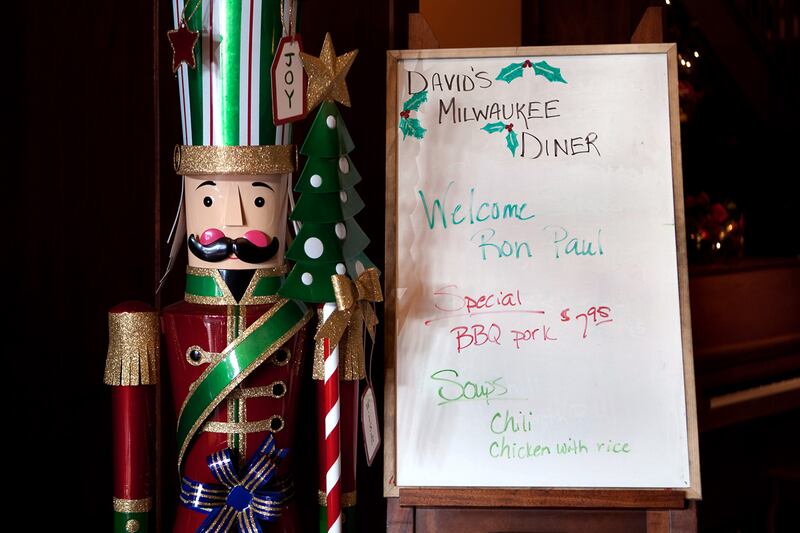 JOY
DAVID'S
MILWAUKEE
DINER
Welcome
Ron Paul
Special
BBQ pork $7.95
Soups
Chili
Chicken with rice